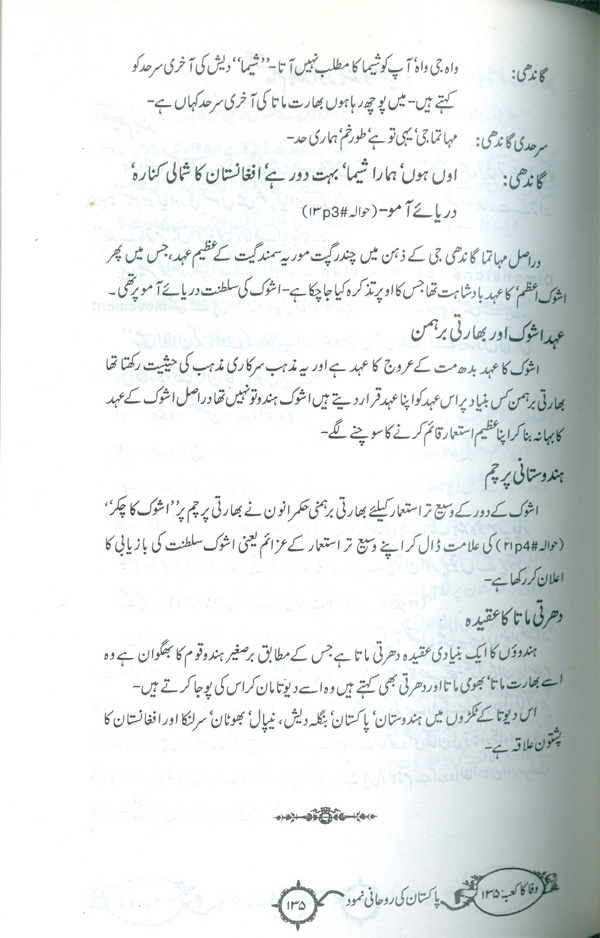 گاندھی: واہ جی واہ‘ آپ کو شیما کا مطلب نہیں آتا۔ ’’شیما‘‘ دیش کی آخری سرحد کو
کہتے ہیں۔ میں پوچھ رہا ہوں بھارت ماتا کی آخری سرحد کہاں ہے۔
سرحدی گاندھی: مہاتما جی‘ یہی تو ہے‘ طورخم‘ ہماری حد۔
گاندھی: اوں ہوں‘ ہمارا شیما‘ بہت دور ہے‘ افغانستان کا شمالی کنارہ‘
دریائے آمو۔ (حوالہ #p3۱۳)
دراصل مہاتما گاندھی جی کے ذہن میں چندر گپت موریہ سمندر گپت کے عظیم عہد، جس میں پھر
اشوک اعظم‘ کا عہد بادشاہت تھا جس کا اوپر تذکرہ کیا جا چکا ہے۔ اشوک کی سلطنت دریائے آمو پر تھی۔
عہد اشوک اور بھارتی برہمن
اشوک کا عہد بدھ مت کے عروج کا عہد ہے اور یہ مذہب سرکاری مذہب کی حیثیت رکھتا تھا
بھارتی برہمن کس بنیاد پر اس عہد کو اپنا عہد قرار دیتے ہیں اشوک ہندو تو نہیں تھا دراصل اشوک کے عہد
کا بہانہ بنا کر اپنا عظیم استعمار قائم کرنے کا سوچنے لگے۔
ہندوستانی پرچم
اشوک کے دور کے وسیع تر استعمار کیلئے بھارتی برہمنی حکمرانون نے بھارتی پرچم پر ’’اشوک کا چکر‘‘
(حوالہ #p4۲۱) کی علامت ڈال کر اپنے وسیع تر استعمار کے عزائم یعنی اشوک سلطنت کی بازیابی کا
اعلان کر رکھا ہے۔
دھرتی ماتا کا عقیدہ
ہندوؤں کا ایک بنیادی عقیدہ دھرتی ماتا ہے جس کے مطابق برصغیر ہندو قوم کا بھگوان ہے وہ
اسے بھارت ماتا‘ بھومی ماتا اور دھرتی بھی کہتے ہیں وہ اسے دیوتا مان کر اس کی پوجا کرتے ہیں۔
اس دیوتا کے ٹکڑوں میں ہندوستان‘ پاکستان‘ بنگلہ دیش، نیپال‘ بھوٹان‘ سرلنکا اور افغانستان کا
پشتون علاقہ ہے۔
وفا کا کعبہ: ۱۳۵ پاکستان کی روحانی نمود ۱۳۵